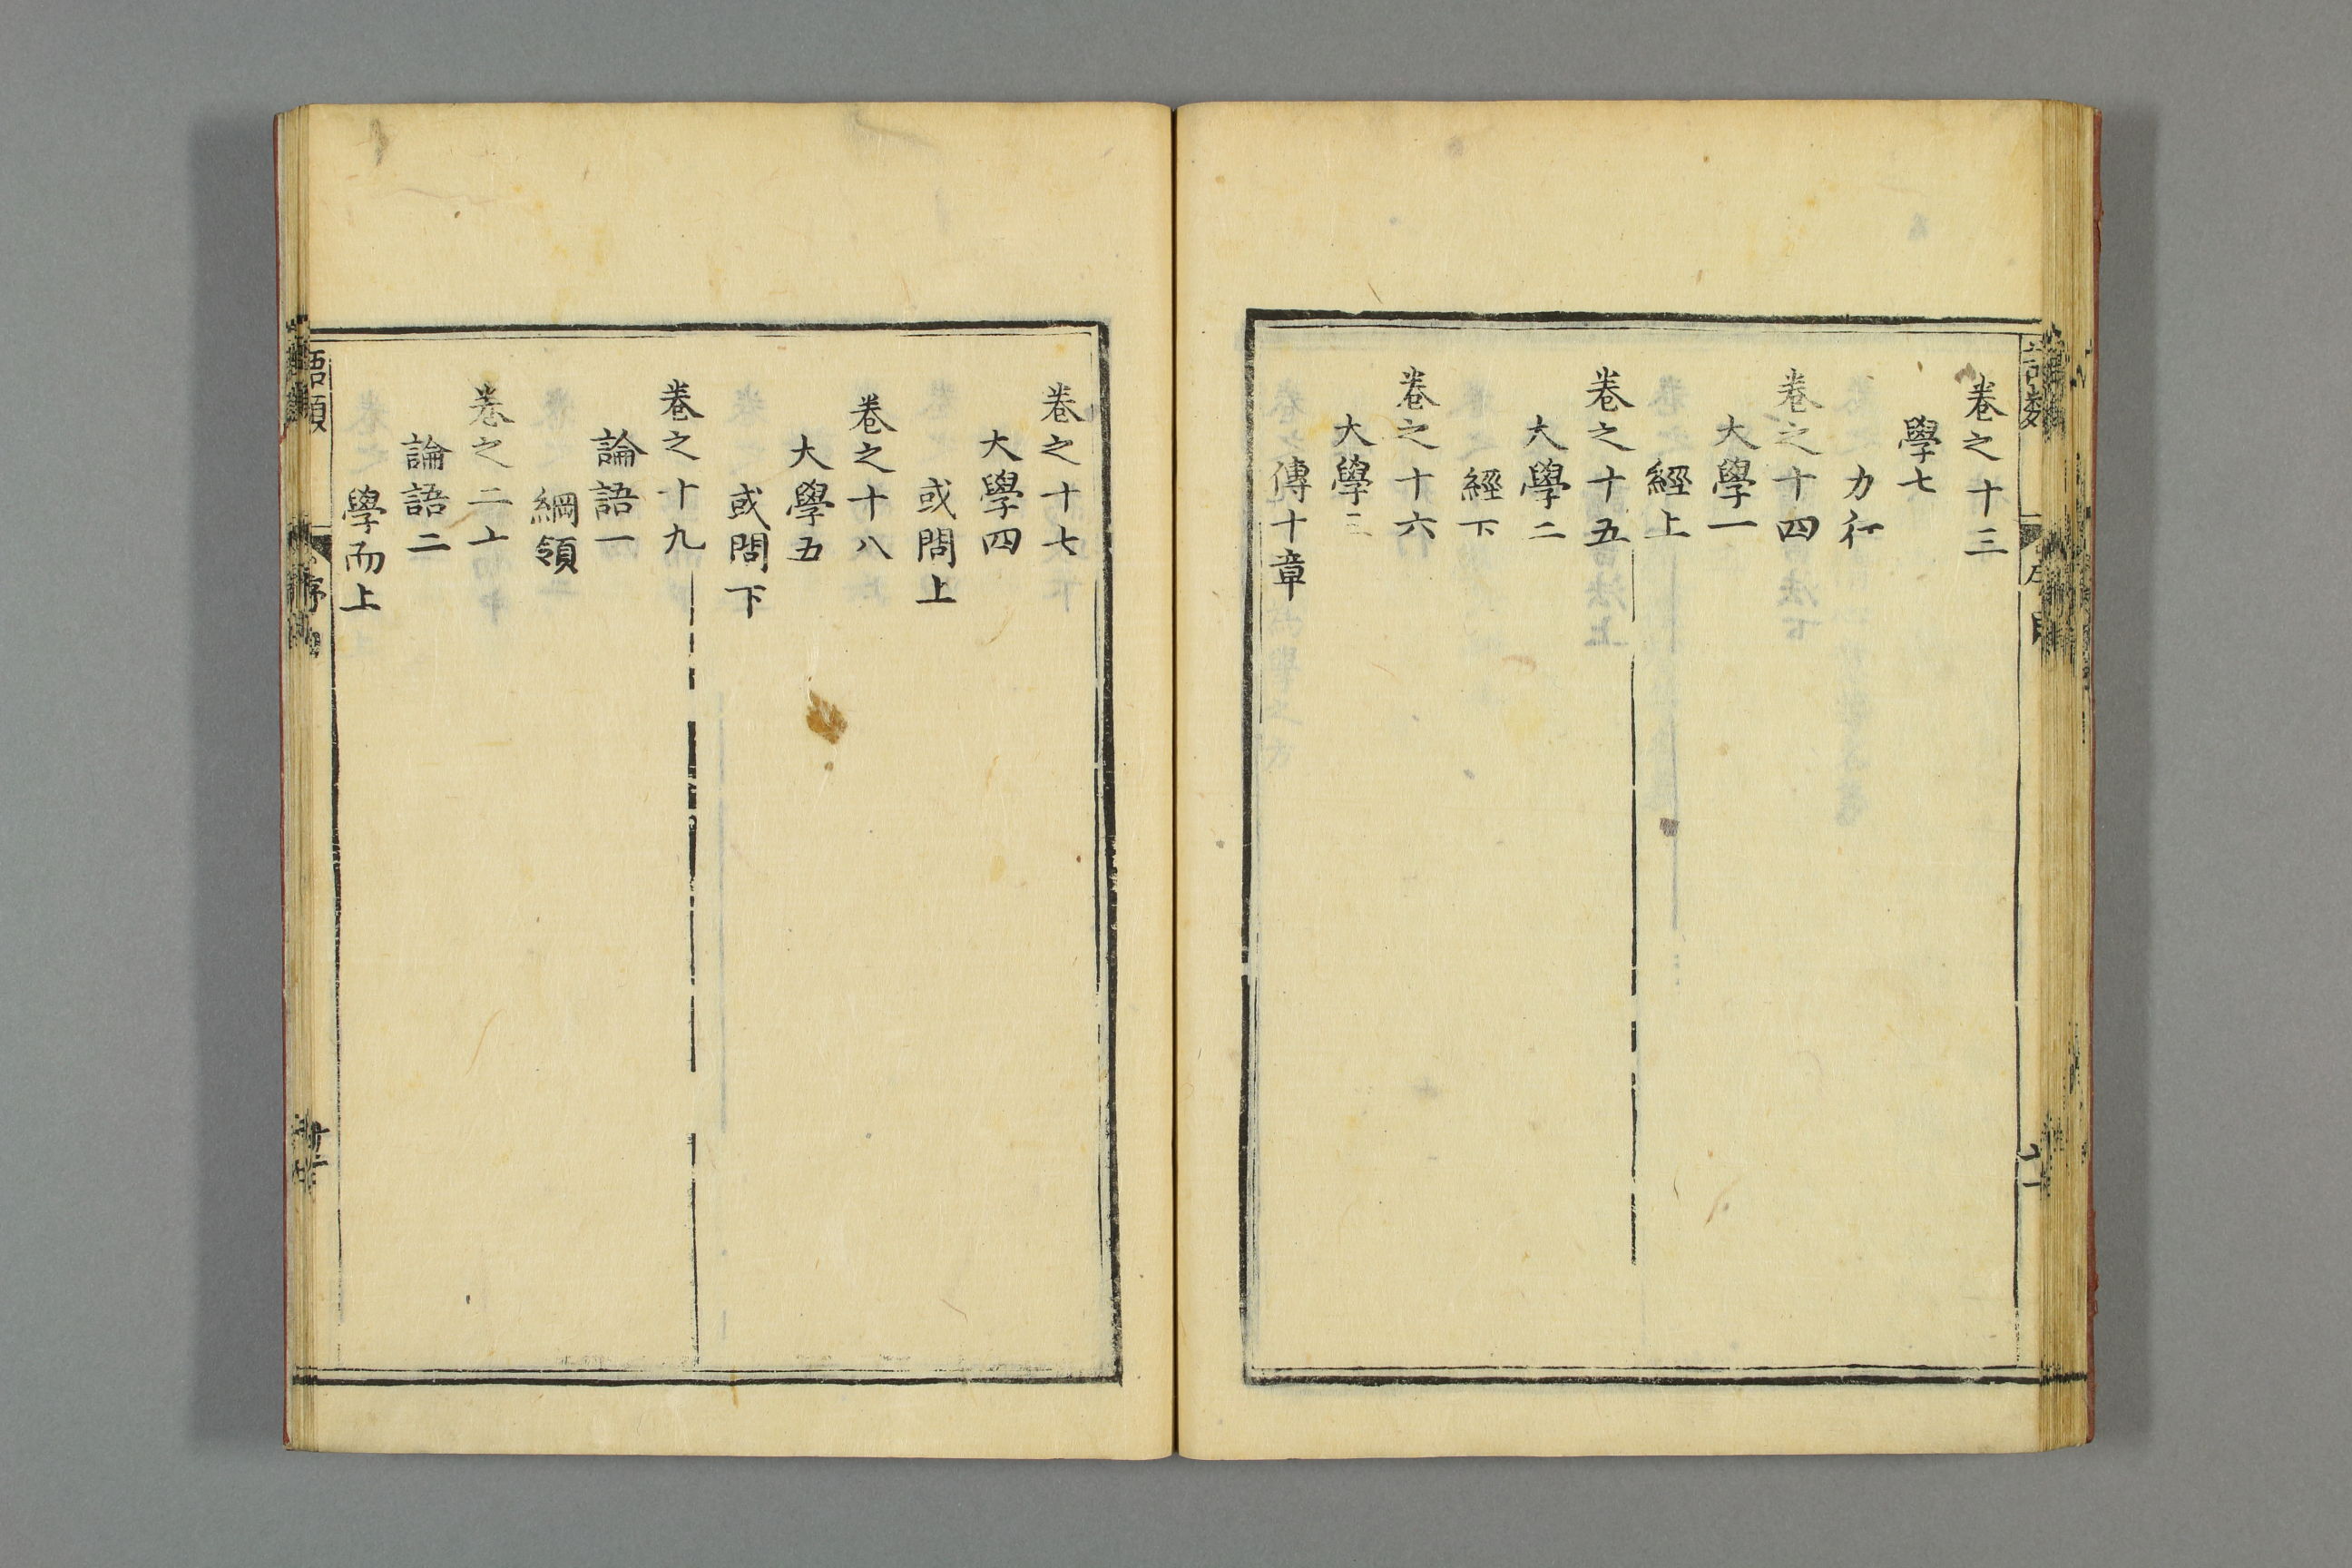 卷之十三
學七
力行
卷之十四
大學一
經上
卷之十五
大學二
經下
卷之十六
大學三
傳十章
卷之十七
大學四
或問上
卷之十八
大學五
或問下
卷之十九
論語一
綱領
卷之二十
論語二
學而上
語類
序